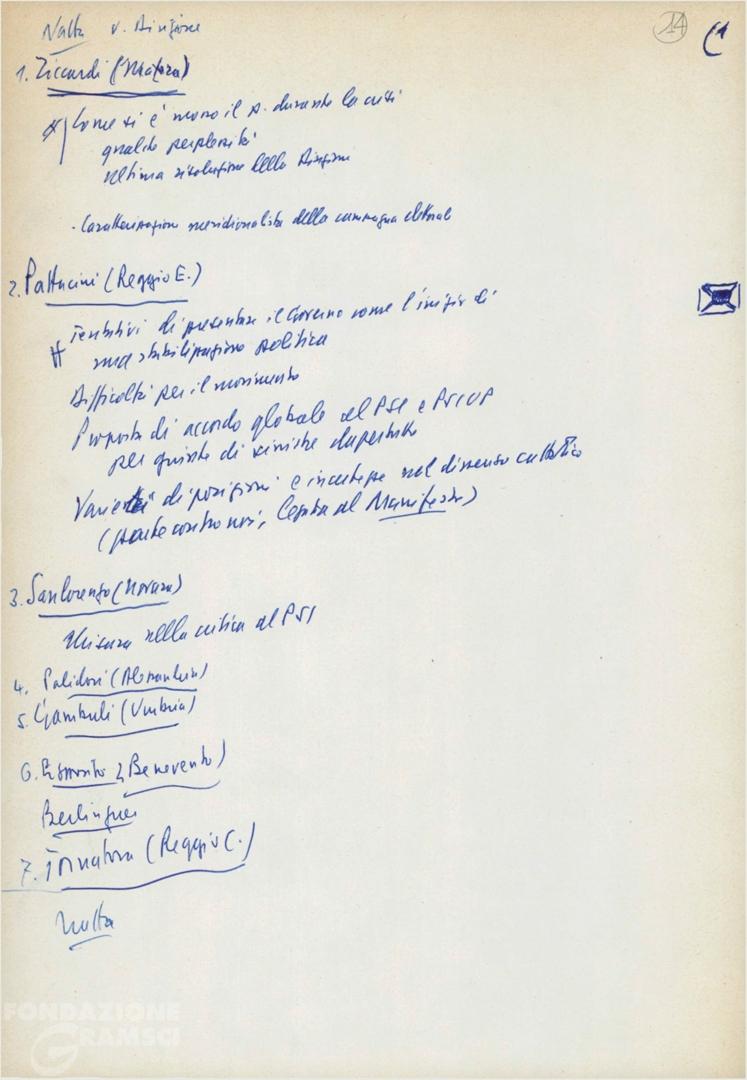 Natta v. Direzione
14
1. Ziccardi (Matera)
Come si è mosso il p. durante la crisi
qualche perplessità
ultima risoluzione della Direzione
- Caratterizzazione meridionalista della campagna elettorale
2. Pattacini (Reggio E.)
Tentativi di presentare il Governo come l'inizio di
una stabilizzazione politica
Difficoltà per il movimento
Proposta di accordo globale al PSI e PSIUP
per giunte di sinistra dappertutto
Varietà di posizioni e incertezze nel dissenso cattolico
(parte contro noi, al Manifesto)
3. Sanlorenzo (Novara)
Misura nella critica al PSI
4. Palidori (Alessandria)
5. Gambuli (Umbria)
6. Esposito (Benevento)
Berlinguer
7. Tornatora (Reggio C.)
Natta
FONDAZIONE
GRAMSCI